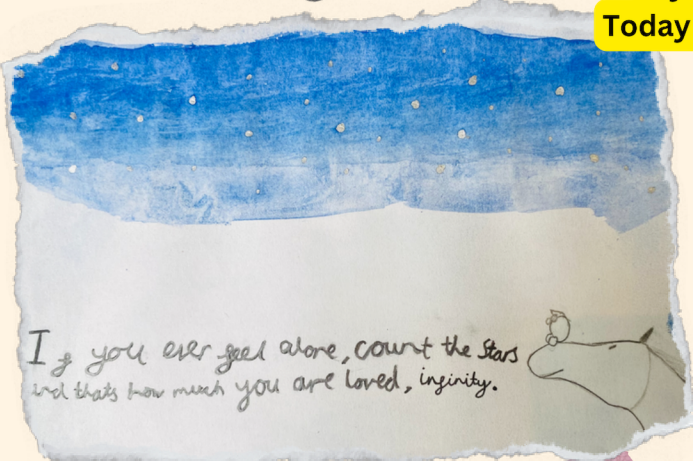 Today
If you ever feel alone, count the Stars
and thats how much you are loved, infinity.